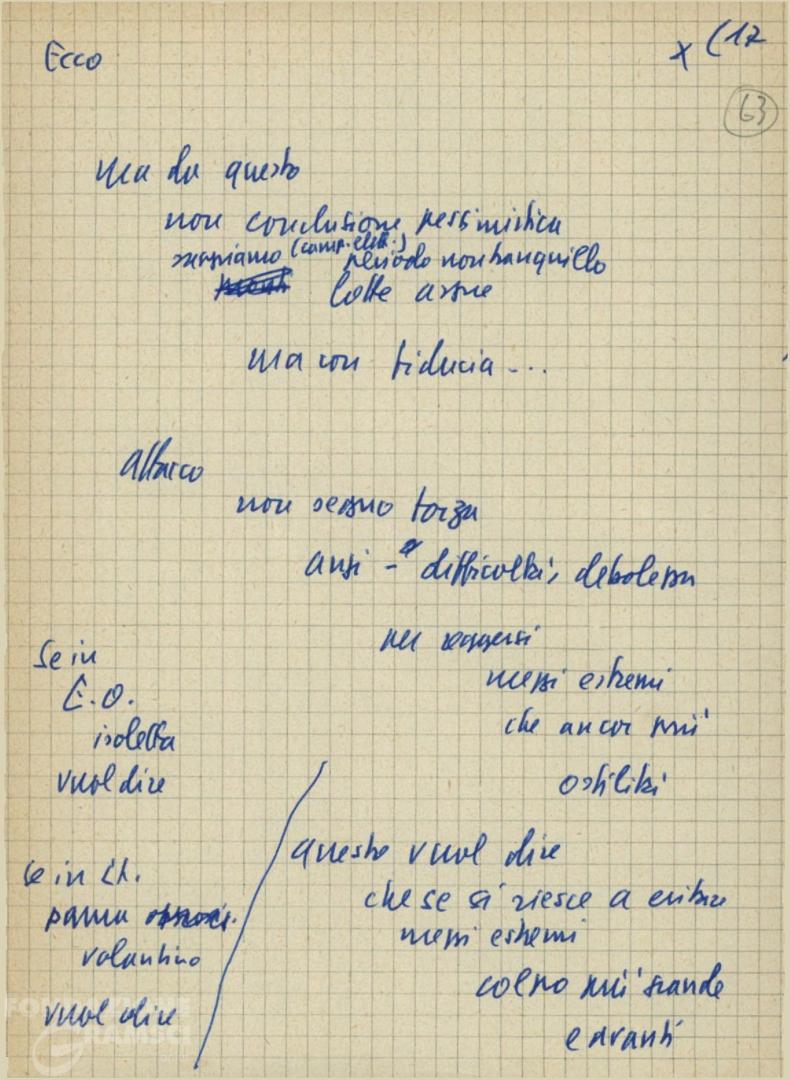 Ecco
x (17
63
ma da questo
non conclusione pessimistica
sappiamo (camp. elett.) periodo non tranquillo
lotte aspre
ma con fiducia...
attacco
non segno forza
anzi - difficoltà, debolezza
per reggersi
mezzi estremi
che ancor più
ostilità
Se in
E.O.
isoletta
vuol dire
se in It.
paura
volantino
vuol dire
questo vuol dire
che se si riesce a evitare
mezzi estremi
colpo più grande
e avanti
FONDAZIONE
GRAMSCI